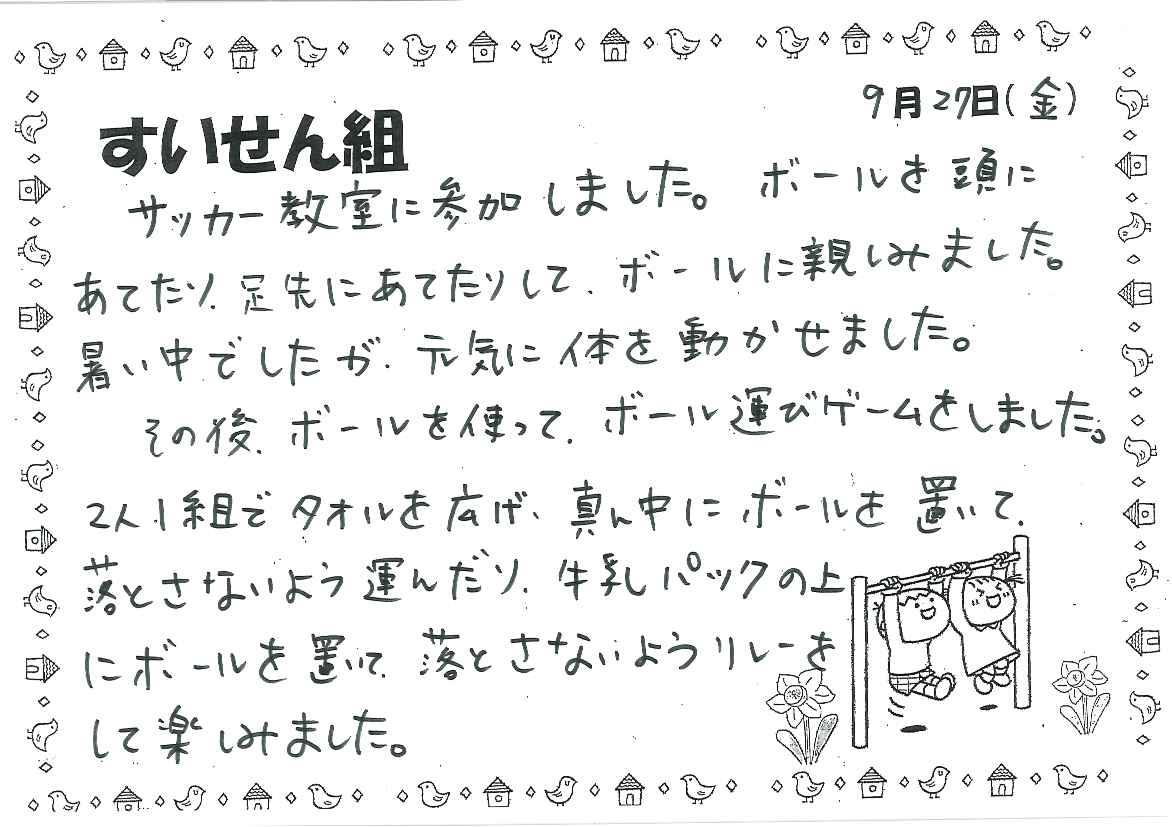 9月27日(金)
すいせん組
サッカー教室に参加しました。ボールを頭に
あてたり、足先にあてたりして、ボールに親しみました。
暑い中でしたが、元気に体を動かせました。
その後、ボールを使って、ボール運びゲームをしました。
2人1組でタオルを広げ、真ん中にボールを置いて、
落とさないよう運んだり、牛乳パックの上
にボールを置いて、落とさないようリレーを
して楽しみました。